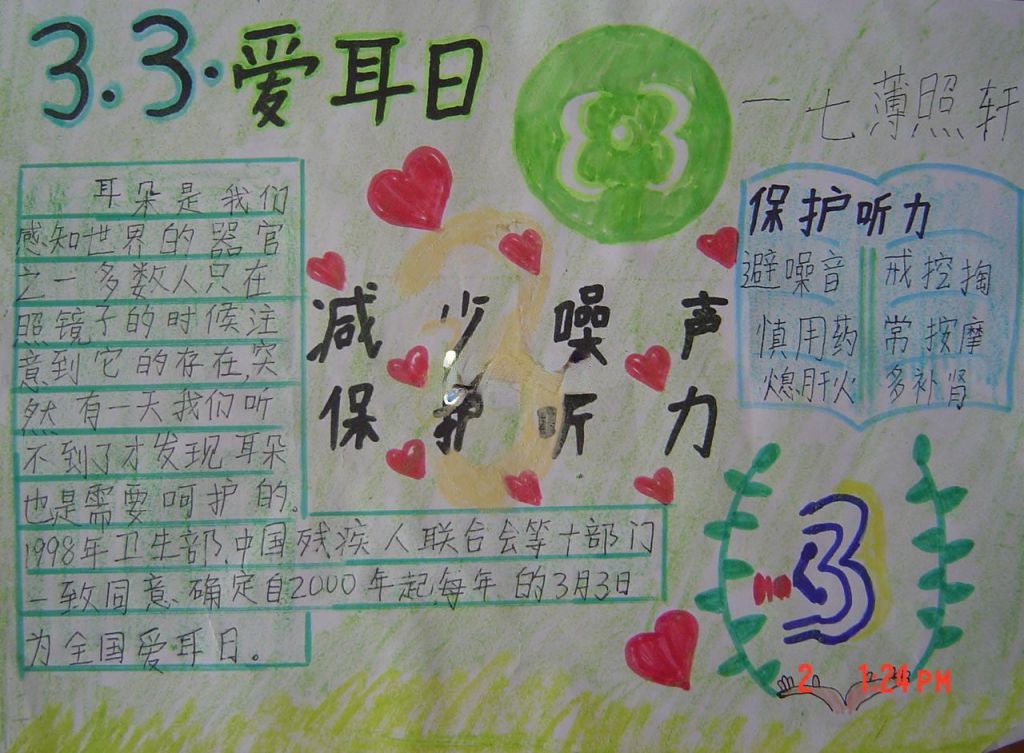 3.3·爱耳日
一七薄照轩
耳朵是我们
感知世界的器官
之一多数人只在
照镜子的时候注
意到它的存在,突
然有一天我们听
不到了才发现耳朵
也是需要呵护的。
1998年卫生部、中国残疾人联合会等十部门
一致同意、确定自2000年起每年的3月3日
为全国爱耳日。
减少噪声
保护听力
保护听力
避噪音 戒挖掏
慎用药 常按摩
熄肝火 多补肾
3
2 1:24PM